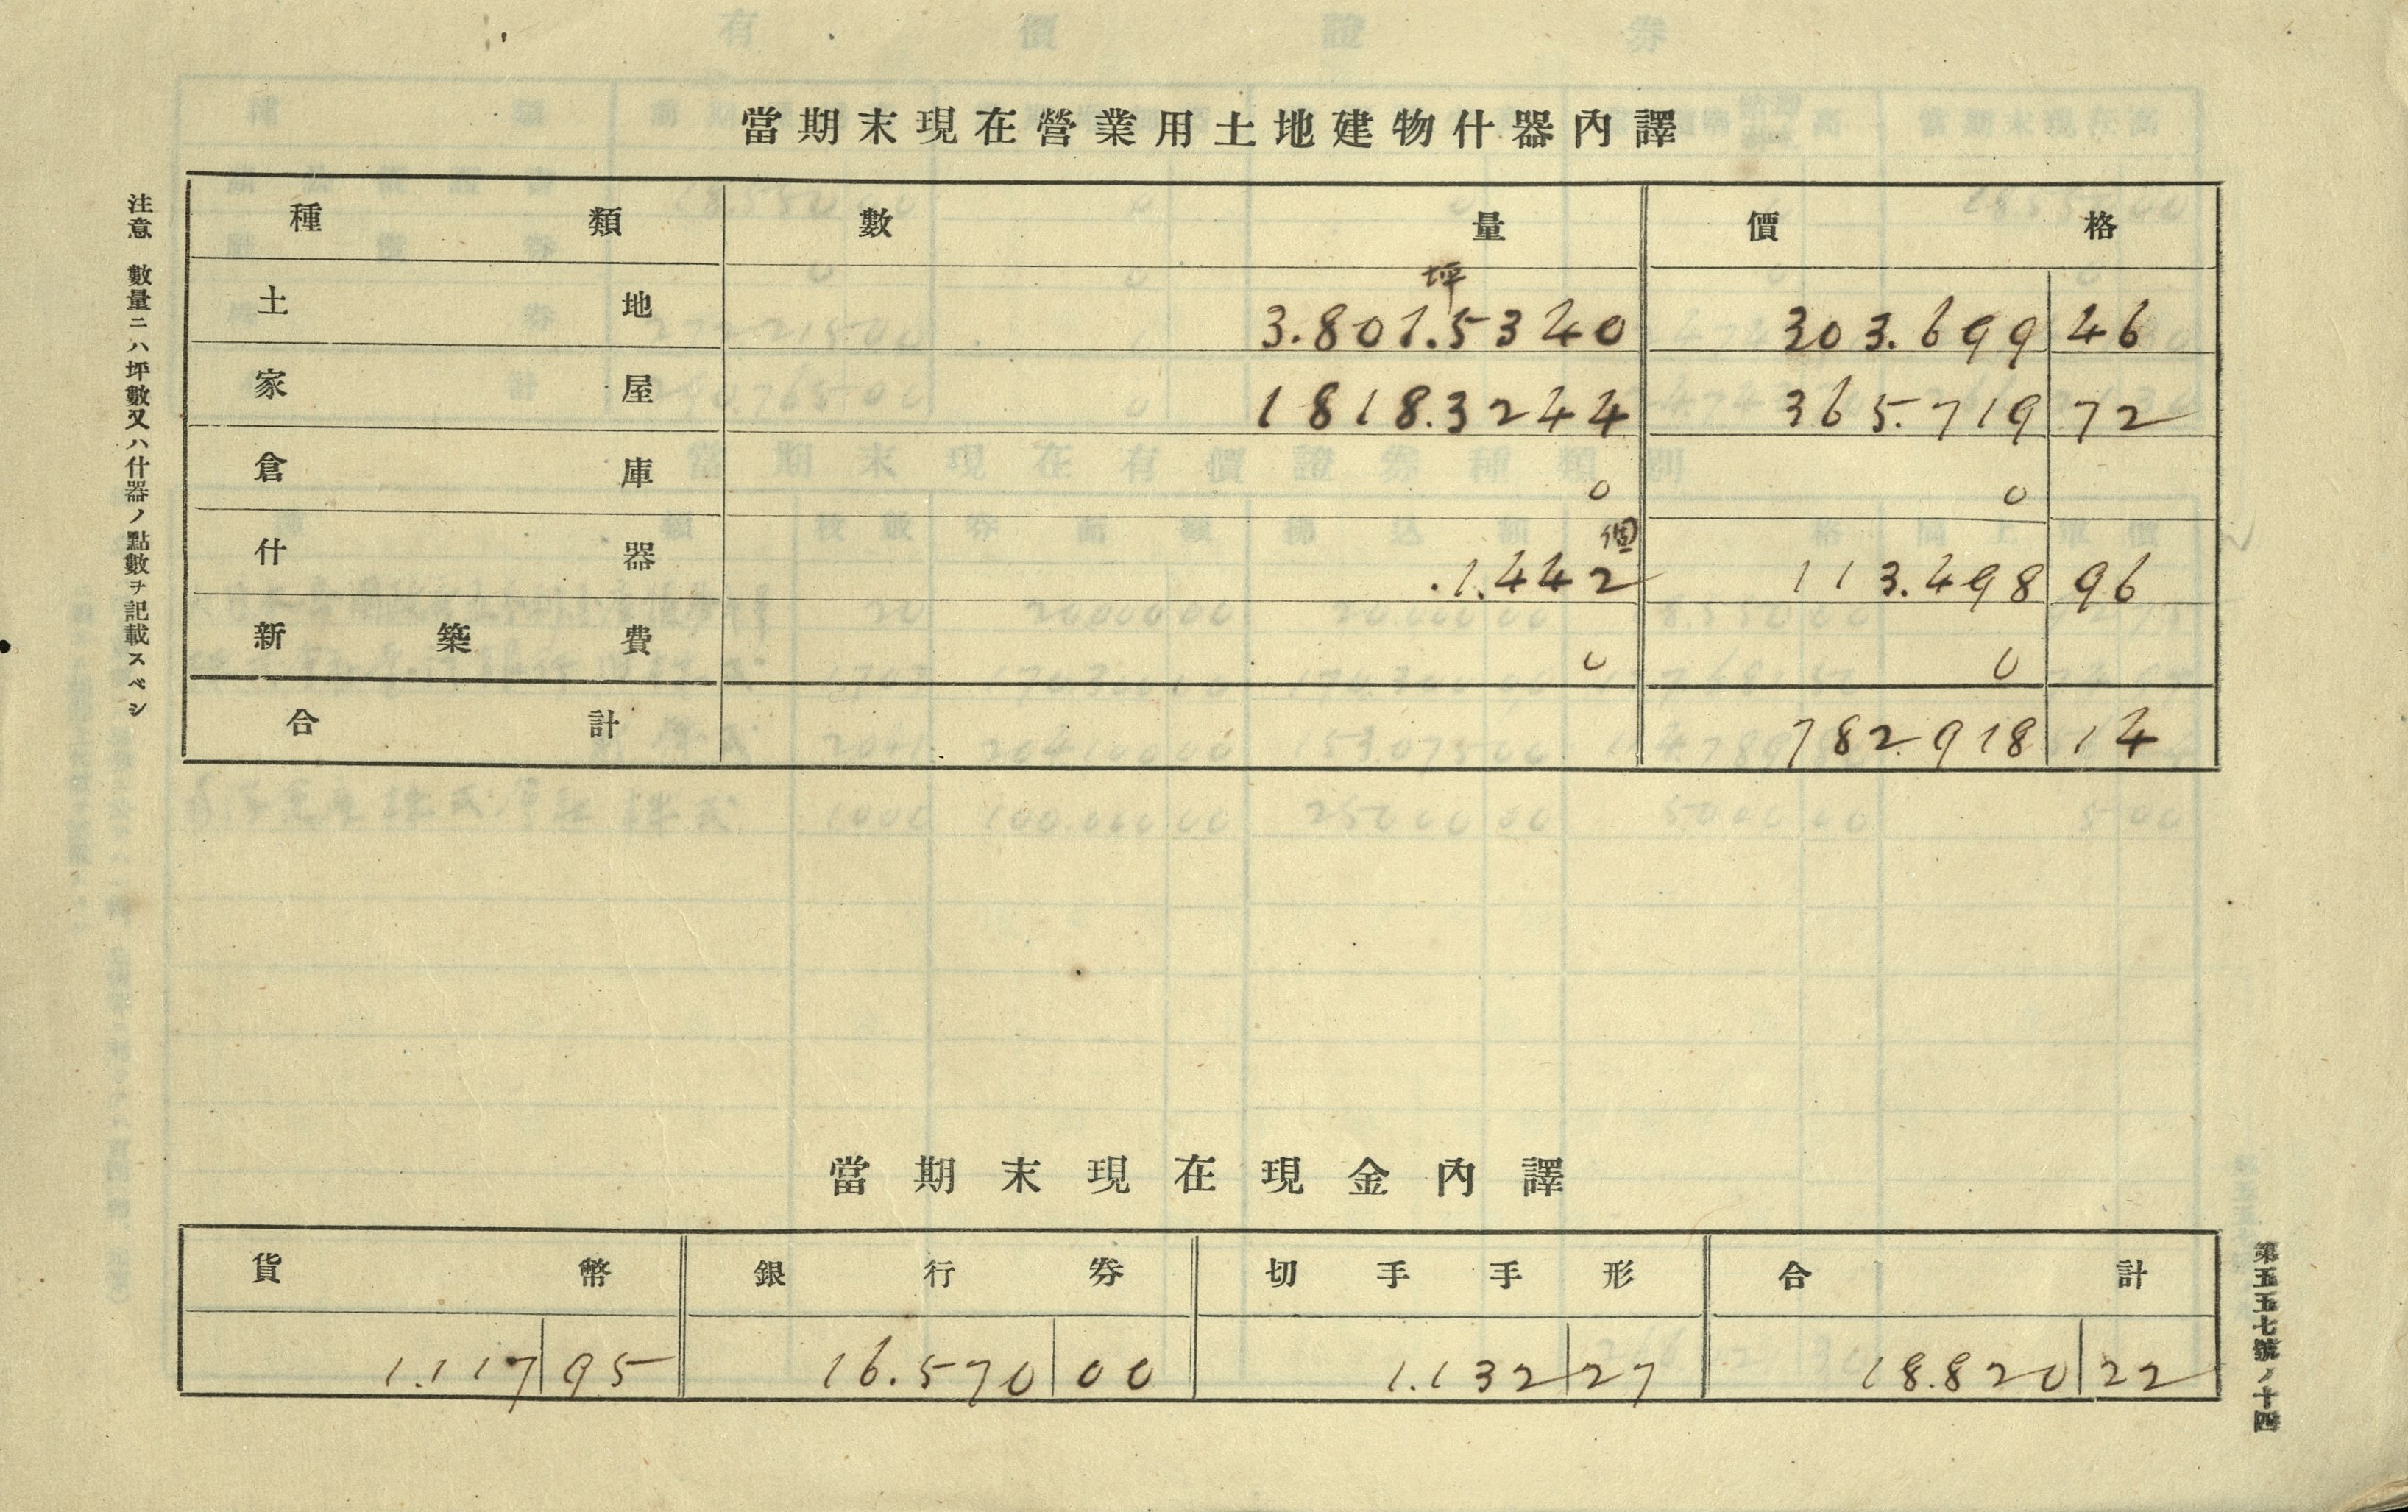 當期末現在營業用土地建物什器內譯
種類 數量 價格
土地 坪 3.801.5340 303.699 46
家屋 1818.3244 365.719 72
倉庫 0 0
什器 個 .1.442 113.498 96
新築費 0 0
合計 782.918 14
注意 數量ニハ坪數又ハ什器ノ點數ヲ記載スベシ
當期末現在現金內譯
貨幣 銀行券 切手手形 合計
1.117 95 16.570 00 1.132 27 18.820 22
第五五七號ノ十四